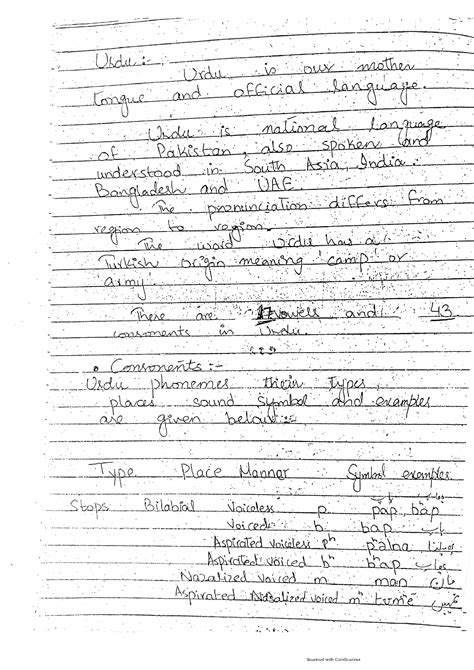 Urdu :-
Urdu is our mother
tongue and official language.
Urdu is national language
of Pakistan, also spoken and
understood in South Asia, India.
Bangladesh and UAE.
The pronunciation differs from
region to region.
The word Urdu has a
Turkish origin meaning 'camp' or
army'.
There are 17 vowels and 43
consonents in Urdu.
• Consonents :-
Urdu phonemes their types,
places sound symbol and examples
are given below :-
Type Place Manner Symbol examples
Stops Bilabial Voiceless p pap,
Voiced b bap باپ
Aspirated voiceless pʰ pʰalna
Aspirated voiced bʰ bʰap بھاپ
Nazalized voiced m man مان
Aspirated Nazalized voiced mʰ
Scanned with CamScanner